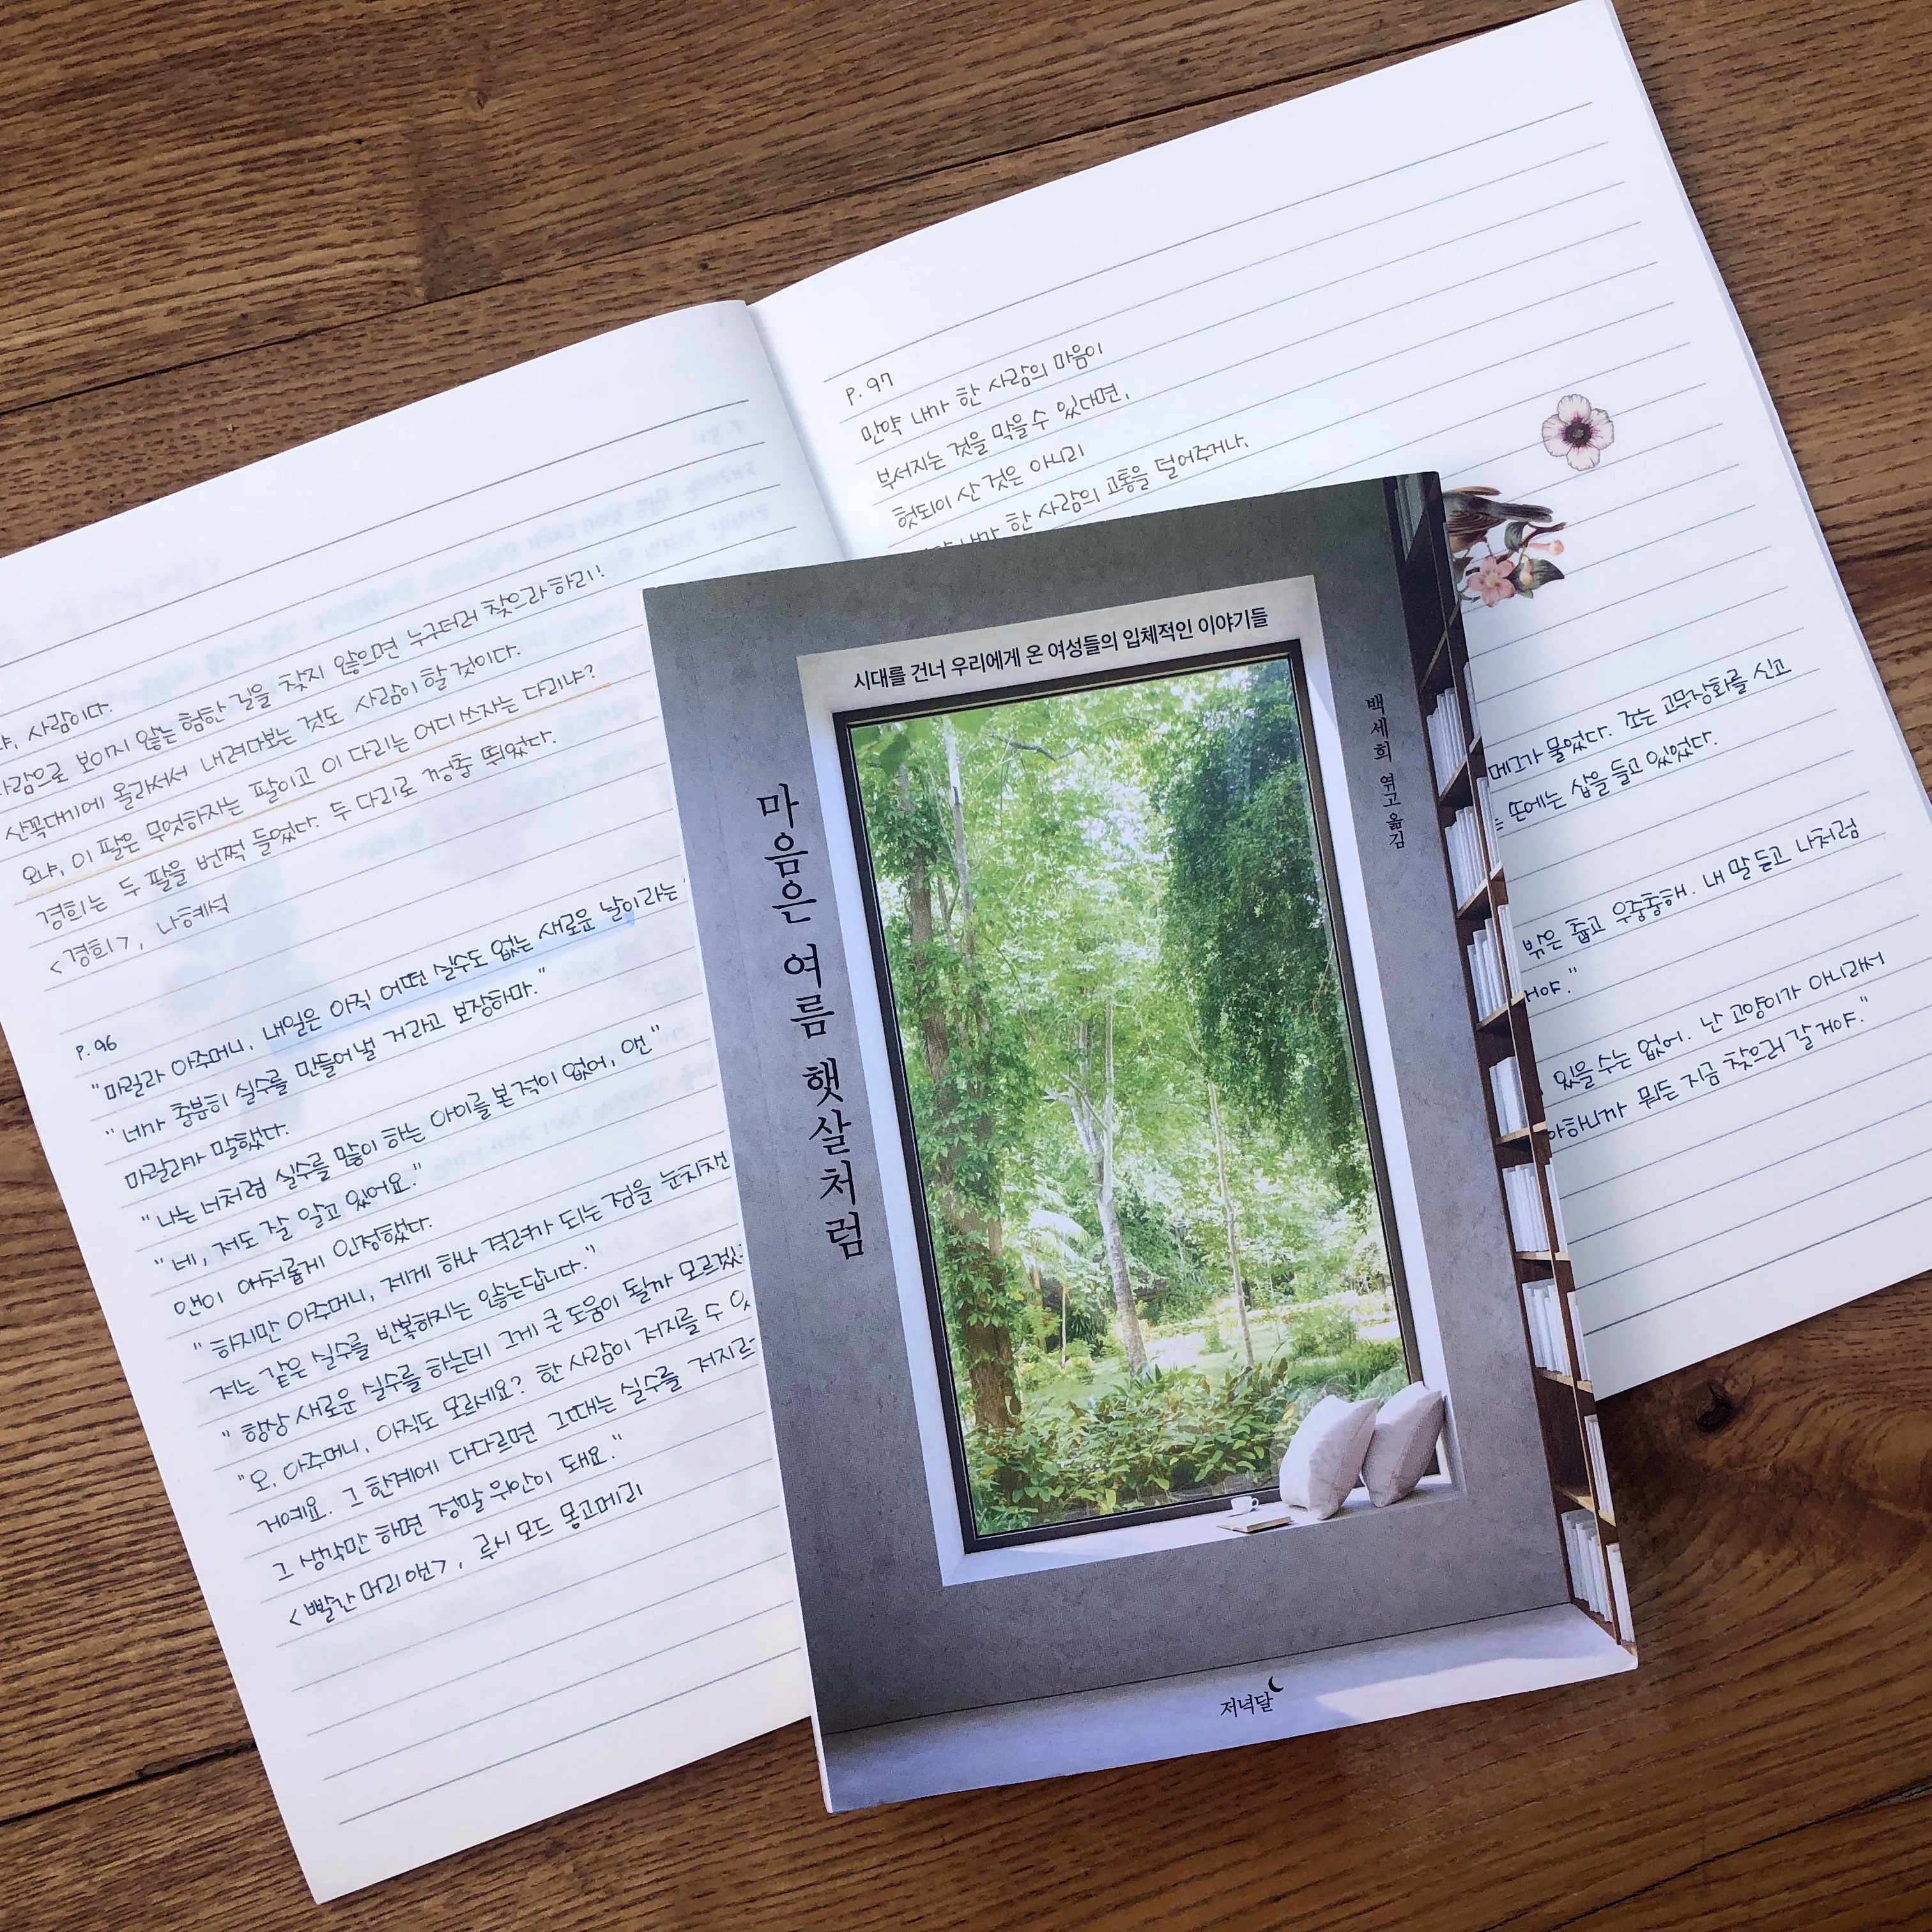 사람이다.
사람으로 보이지 않는 험한 길을 찾지 않으면 누구더러 찾으라 하리!
산꼭대기에 올라서서 내려다보는 것도 사람이 할 것이다.
오냐, 이 팔은 무엇하자는 팔이고 이 다리는 어디 쓰자는 다리냐?
경희는 두 팔을 번쩍 들었다. 두 다리로 껑충 뛰었다.
<경희>, 나혜석
P. 96
"마릴라 아주머니, 내일은 아직 어떤 실수도 없는 새로운 날이라는
"네가 충분히 실수를 만들어낼 거라고 보장하마."
마릴라가 말했다.
"나는 너처럼 실수를 많이 하는 아이를 본 적이 없어, 앤"
"네, 저도 잘 알고 있어요."
앤이 애처롭게 인정했다.
"하지만 아주머니, 제게 하나 격려가 되는 점을 눈치채
저는 같은 실수를 반복하지는 않는답니다."
"항상 새로운 실수를 하는데 그게 큰 도움이 될까 모르겠
"오, 아주머니, 아직도 모르세요? 한 사람이 저지를 수
거예요. 그 한계에 다다르면 그때는 실수를 저지르
그 생각만 하면 정말 위안이 돼요."
<빨간 머리 앤>, 루시 모드 몽고메리
P. 97
만약 내가 한 사람의 마음이
부서지는 것을 막을 수 있다면,
헛되이 산 것은 아니리
내가 한 사람의 고통을 덜어주거나,
메그가 물었다. 조는 고무장화를 신고
손에는 삽을 들고 있었다.
밖은 춥고 우중충해. 내 말 듣고 나처럼
있을 수는 없어. 난 고양이가 아니라서
뭐든 지금 찾으러 갈 거야."
시대를 건너 우리에게 온 여성들의 입체적인 이야기들
마음은 여름 햇살처럼
백세희 엮고 옮김
저녁달